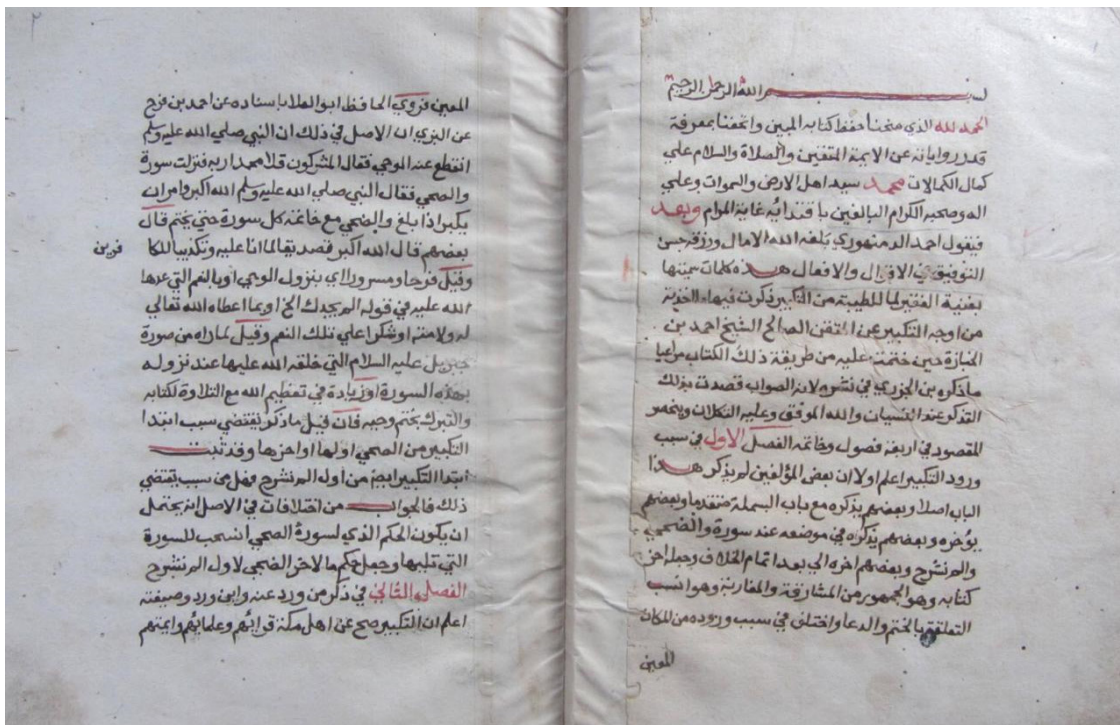 بسم الله الرحمن الرحيم
الحمد لله الذي منحنا حفظ كتابه المبين واتحفنا بمعرفة
قدر رواياته عن الايمة المتقين والصلاة والسلام علي
كمال الكمالات محمد سيد اهل الارض والسموات وعلي
اله وصحبه الكرام البالغين باقتدائه غاية المرام وبعد
فيقول احمد الدمنهوري بلغه الله الامال ورزقه حسن
التوفيق في الاقوال والافعال هذه كلمات سميتها
بغنية الفقير لما للطيبة من التكبير ذكرت فيها
من اوجه التكبير عن المتقن الصالح الشيخ احمد بن
الخبازة حين ختمت عليه من طريقة ذلك الكتاب مراعيا
ماذكره بن الجزري في نشره لانه الصواب قصدت بذلك
التذكر عند النسيان والله الموفق وعليه التكلان وينحصر
المقصود في اربعة فصول وخاتمه الفصل الاول في سبب
ورود التكبير اعلم اولا ان بعض المؤلفين لم يذكر هذا
الباب اصلا وبعضهم يذكره مع باب البسملة متقدما وبعضهم
يؤخره وبعضهم يذكره في موضعه عند سورة والضحي
والم نشرح وبعضهم اخره الي بعد اتمام الخلاف وجعله اخر
كتابه وهو الجمهور من المشارقة والمغاربة وهو انسب
التعلقه بالختم والدعا واختلف في سبب وروده من المكان
المعين
٢
المعين فروي الحافظ ابو العلا باسناده عن احمد بن فرح
عن البزي ان الاصل في ذلك ان النبي صلي الله عليه وسلم
انقطع عنه الوحي فقال المشركون قلا محمدا ربه فنزلت سورة
والضحي فقال النبي صلي الله عليه وسلم الله اكبر وامر ان
يكبر اذا بلغ والضحي مع خاتمة كل سورة حتي يختم قال
بعضهم قال الله اكبر تصديقا لما انا عليه وتكذيبا للكا
فرين
وقيل فرحا وسرورا اي بنزول الوحي او بالنعم التي عدها
الله عليه في قوله الم يجدك الخ او بما اعطاه الله تعالي
له ولامته او شكرا علي تلك النعم وقيل لما راه من صورة
جبريل عليه السلام التي خلقه الله عليها عند نزوله
بهذه السورة او زيادة في تعظيم الله مع التلاوة لكتابه
والتبرك بختم وحيه فان قيل ما ذكر يقتضي سبب ابتدا
التكبير من الضحي اولها او اخرها وقد ثبت
ابتدا التكبير ايضا من اول الم نشرح فهل من سبب يقتضي
ذلك فالجواب من اختلافات في الاصل انه يحتمل
ان يكون الحكم الذي لسورة الضحي انسحب للسورة
التي تليها وجعل حكم ما لاخر الضحي لاول الم نشرح
الفصل الثاني في ذكر من ورد عنه واين ورد وصيغته
اعلم ان التكبير صح عن اهل مكة قرائهم وعلمائهم وايمتهم